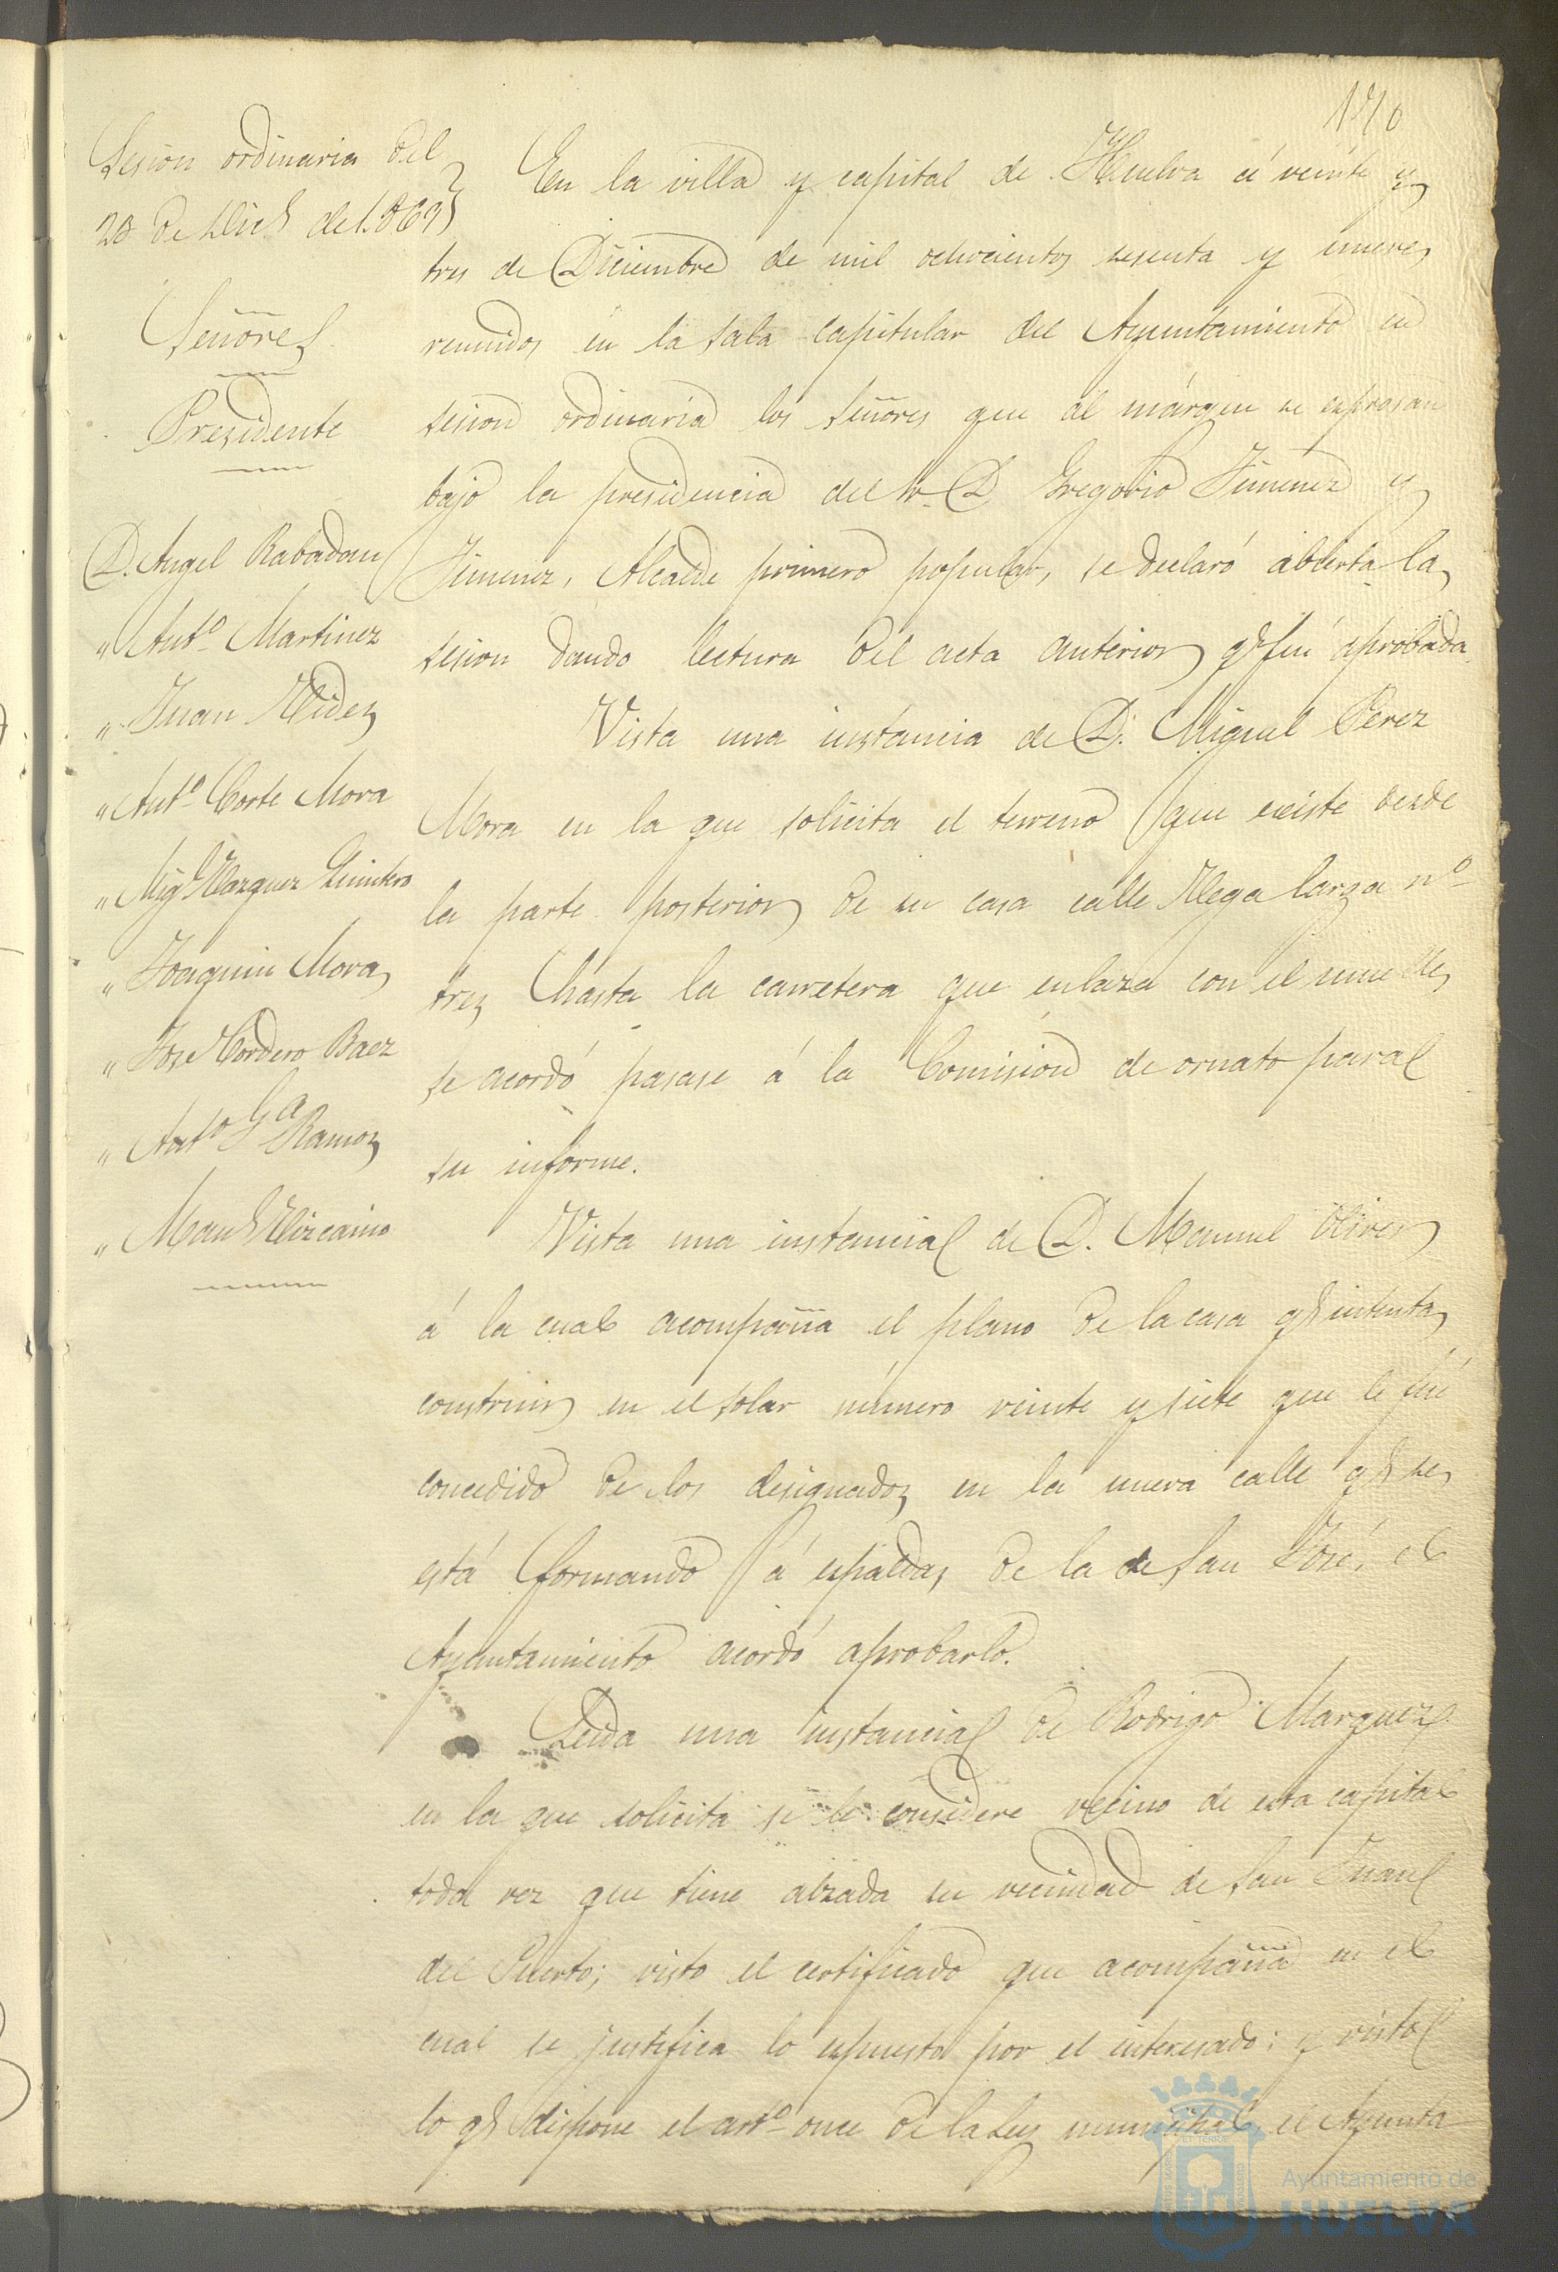 170
Sesion ordinaria del
23 de Dic.e de 1.869
Señores
Presidente
D. Angel Rabadan
" Ant.o Martinez
" Juan
" Ant.o Corte Mora
" Mig.l Vazquez Quintero
" Joaquin Mora
" Jose Cordero Baez
" Ant.o G.a Ramos
" Man.l Vizcaino
En la villa y capital de Huelva á veinte y
tres de Diciembre de mil ochocientos sesenta y nueve
reunidos en la sala capitular del Ayuntamiento en
sesion ordinaria los señores que al márgen se espresan
bajo la presidencia del Sr. D. Gregorio Jimenez y
Jimenez, Alcalde primero popular, se declaró abierta la
sesion dando lectura del acta anterior q.e fué aprobada.
Vista una instancia de D. Miguel Perez
Mora en la que solicita el terreno que existe desde
la parte posterior de su casa calle Vega larga n.o
tres hasta la carretera que enlaza con el muelle,
se acordó pasase á la Comision de ornato para
su informe.
Vista una instancia de D. Manuel Oliver
á la cual acompaña el plano de la casa q.e intenta
construir en el solar número veinte y siete que le fué
concedido de los designados en la nueva calle q.e se
está formando á espaldas de la de San José, el
Ayuntamiento acordó aprobarlo.
Leida una instancia de Rodrigo Marquez
en la que solicita se le considere vecino de esta capital
toda vez que tiene alzada su vecindad de San Juan
del Puerto; visto el certificado que acompaña en el
cual se justifica lo espuesto por el interesado; y visto
lo q.e dispone el art.o once de la Ley municipal, el Ayunta
Ayuntamiento de
HUELVA